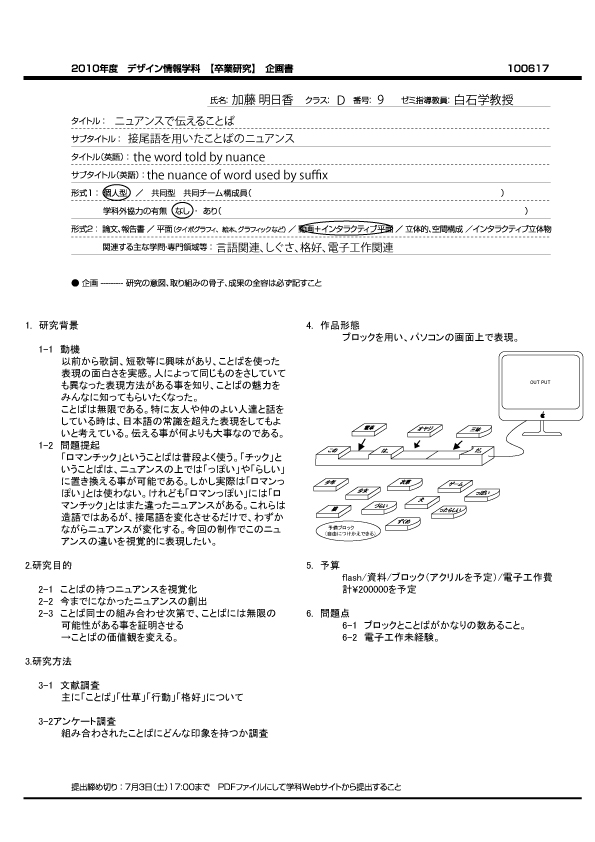 2010年度　デザイン情報学科　【卒業研究】　企画書　100617
氏名: 加藤 明日香　クラス: D　番号: 9　ゼミ指導教員: 白石学教授
タイトル： ニュアンスで伝えることば
サブタイトル： 接尾語を用いたことばのニュアンス
タイトル(英語)： the word told by nuance
サブタイトル(英語)： the nuance of word used by suffix
形式1： 個人型　／　共同型　共同チーム構成員(　)
学科外協力の有無　なし ・ あり(　)
形式2： 論文、報告書 ／ 平面(タイポグラフィ、絵本、グラフィックなど) ／ 動画＋インタラクティブ平面 ／ 立体的、空間構成 ／インタラクティブ立体物
関連する主な学問・専門領域等： 言語関連、しぐさ、格好、電子工作関連
● 企画 --------- 研究の意図、取り組みの骨子、成果の全容は必ず記すこと
1. 研究背景
1-1 動機
以前から歌詞、短歌等に興味があり、ことばを使った
表現の面白さを実感。人によって同じものをさしていて
も異なった表現方法がある事を知り、ことばの魅力を
みんなに知ってもらいたくなった。
ことばは無限である。特に友人や仲のよい人達と話を
している時は、日本語の常識を超えた表現をしてもよ
いと考えている。伝える事が何よりも大事なのである。
1-2 問題提起
「ロマンチック」ということばは普段よく使う。「チック」と
いうことばは、ニュアンスの上では「っぽい」や「らしい」
に置き換える事が可能である。しかし実際は「ロマンっ
ぽい」とは使わない。けれども「ロマンっぽい」には「ロ
マンチック」とはまた違ったニュアンスがある。これらは
造語ではあるが、接尾語を変化させるだけで、わずか
ながらニュアンスが変化する。今回の制作でこのニュ
アンスの違いを視覚的に表現したい。
2.研究目的
2-1 ことばの持つニュアンスを視覚化
2-2 今までになかったニュアンスの創出
2-3 ことば同士の組み合わせ次第で、ことばには無限の
可能性がある事を証明させる
→ことばの価値観を変える。
3.研究方法
3-1 文献調査
主に「ことば」「仕草」「行動」「格好」について
3-2アンケート調査
組み合わされたことばにどんな印象を持つか調査
4. 作品形態
ブロックを用い、パソコンの画面上で表現。
OUT PUT
この
は、
だ。
少年
少女
ゲーム
っぽい
犬
づらい
ったらしい
ずくめ
予備ブロック
(自由につけかえできる)
5. 予算
flash/資料/ブロック(アクリルを予定)/電子工作費
計¥200000を予定
6. 問題点
6-1 ブロックとことばがかなりの数あること。
6-2 電子工作未経験。
提出締め切り：7月3日(土)17:00まで　PDFファイルにして学科Webサイトから提出すること